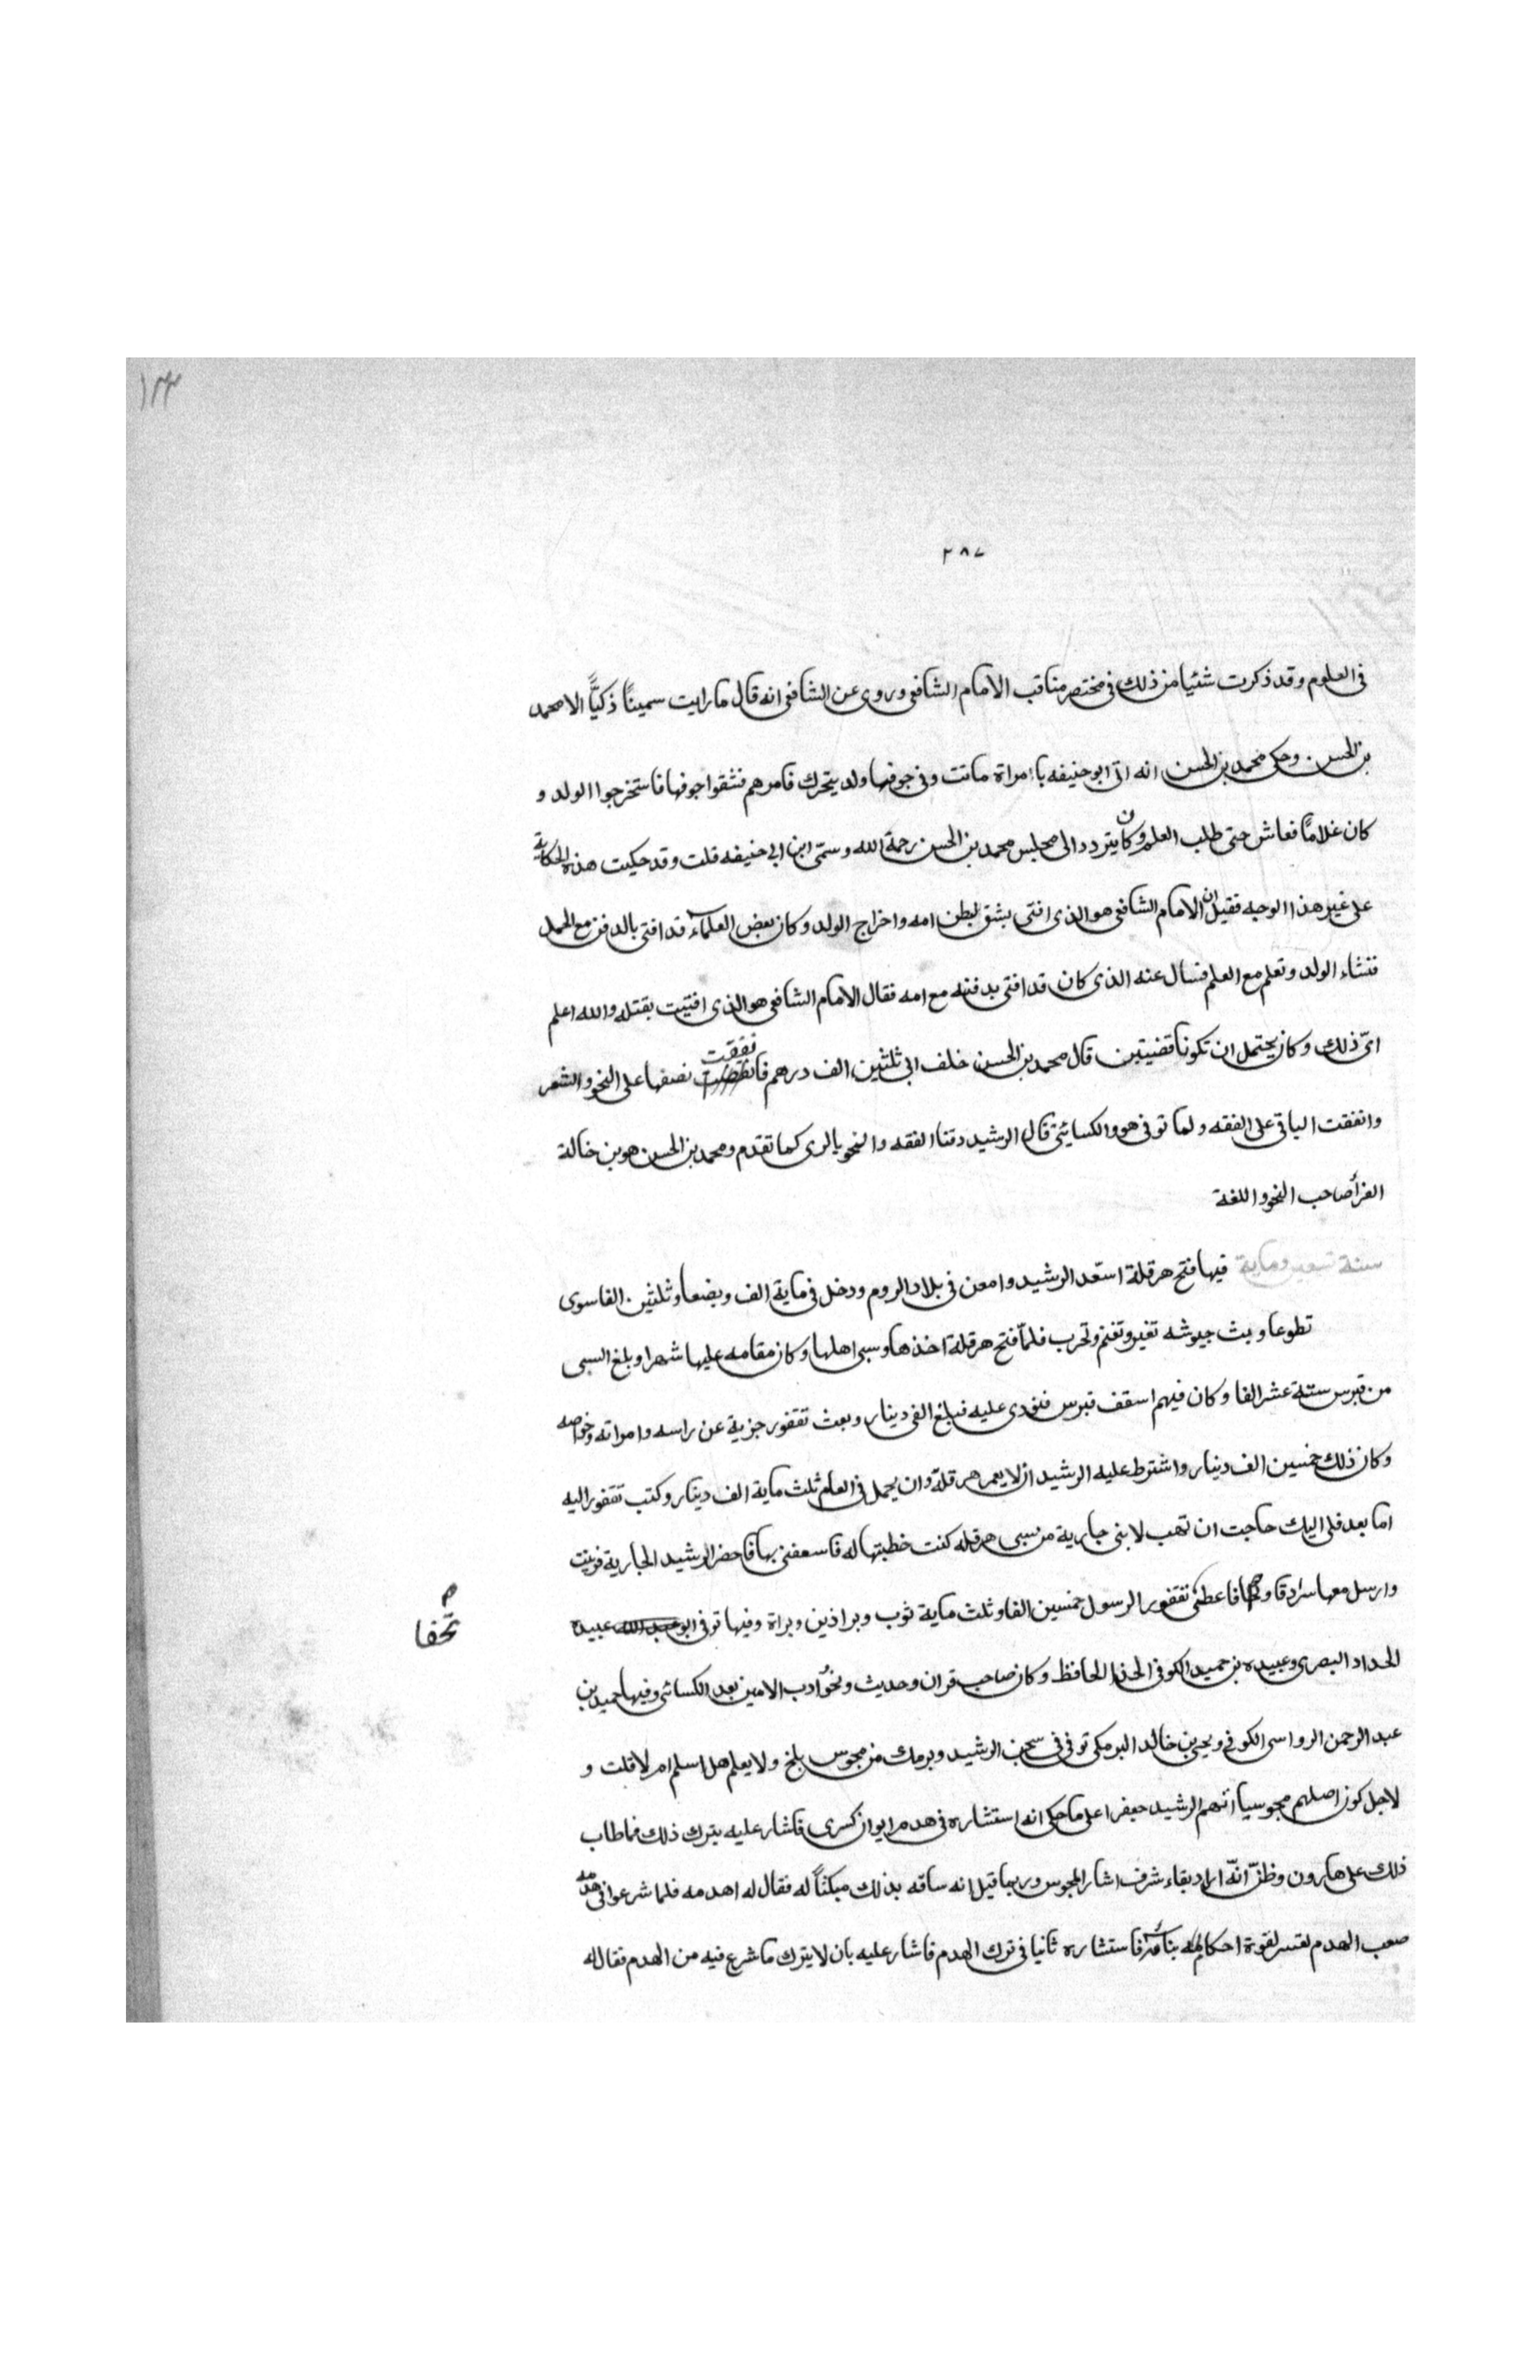 ١٣٣
٢٨٧
في العلوم وقد ذكرت شئيا من ذلك في مختصر مناقب الامام الشافعي وروى عن الشافعي انه قال ما رايت سمينًا ذكيًّا الا محمد
بن الحسن وحكى محمد بن الحسن انه اتى ابو حنيفه با امراة ماتت وفي جوفها ولد يتحرك فامرهم فشقوا جوفها فاستخرجوا الولد و
كان غلامًا فعاش حتى طلب العلم وكان يتردد الى مجلس محمد بن الحسن رحمة الله وسمّى ابن ابي حنيفه قلت وقد حكيت هذه الحكاية
على غير هذا الوجه فقيل ان الامام الشافعي هو الذى افتى بشق بطن امه واخراج الولد وكان بعض العلماء قد افتى بالدفن مع الحمل
فنشاء الولد وتعلم مع العلم فسأل عنه الذى كان قد افتى بدفنه مع امه فقال الامام الشافعي هو الذى افتيت بقتله والله اعلم
اىّ ذلك وكان يحتمل ان تكونا قضيتين قال محمد بن الحسن خلف ابي ثلثين الف درهم فانفقت نصفها على النحو والشعر
وانفقت الباقى على الفقه ولما توفي هو والكسائيّ قال الرشيد دفنا الفقه والنحو بالرى كما تقدم ومحمد بن الحسن هو بن خالة
الفرأ صاحب النحو واللغة
سنة تسعين وماية فيها فتح هرقلة استعد الرشيد وامعن في بلاد الروم ودخل في ماية الف وبضعا وثلثين الفا سوى
تطوعا وبث جيوشه تغير وتغنم وتحرب فلمّا فتح هرقلة اخذها وسبى اهلها وكان مقامه عليها شهرا وبلغ السبى
من قبرس ستة عشر الفا وكان فيهم اسقف قبرس فنودى عليه فبلغ الفى دينار وبعث تقفور جزية عن راسه وامراته وخواصه
وكان ذلك خمسين الف دينار واشترط عليه الرشيد ان لا يعمر هرقلة وان يحمل في العام ثلث ماية الف دينار وكتب تقفور اليه
اما بعد فلى اليك حاجت ان تهب لابنى جارية من سبى هرقله كنت خطبتها له فاسعفنى بها فاحضر الرشيد الجارية فزينت
وارسل معها سرادقا و فاعطى نقفور الرسول خمسين الفا وثلث ماية ثوب وبراذين وبراة وفيها توفي ابو عبيده
تحفا
الحداد البصرى وعبيده بن حميد الكوفي الحذا الحافظ وكان صاحب قران وحديث ونحو ادب الامين بعد الكسائى وفيها حميد بن
عبد الرحمن الرواسى الكوفي ويحيى بن خالد البرمكى توفي في سجن الرشيد وبرمك من مجوس بلخ ولا يعلم هل اسلم ام لا قلت و
لاجل كون اصلهم مجوسيا اتهم الرشيد جعفرا على ما حكى انه استشاره في هدم ايوان كسرى فاشار عليه بترك ذلك فما طاب
ذلك على هارون وظنّ انّه اراد بقاء شرف اشار المجوس وربما قيل انه ساقه بذلك مبكتًا له فقال له اهدمه فلما شرعوا في هدمه
صعب الهدم لقوة احكام بنائه فاستشاره ثانيا في ترك الهدم فاشار عليه بان لا يترك ما شرع فيه من الهدم فقال له